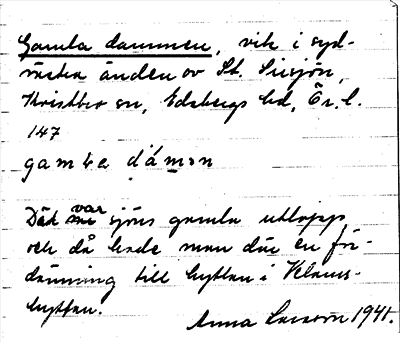 Gamla dammen, vik i syd-
västra änden av St. Sirsjön,
Kvistbro sn, Edsbergs hd, Ör. l.
147
gamla dámən
Där var sjöns gamla utlopp
och då hade man där en för-
dämning till hyttan i Klaus-
hyttan.
Anna Larsson 1941.